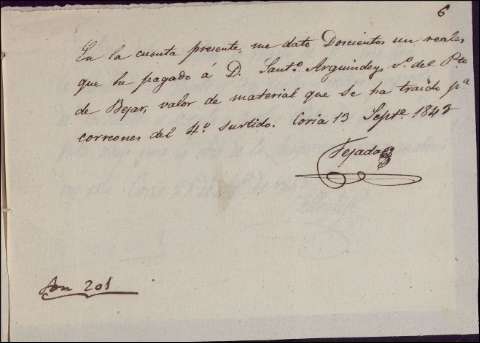 6
En la cuenta presente, me dato Doscientos un reales
que he pagado á D. Santº Arguindey, vº del Pte
de Bejar, valor de material que se ha traido pª
correones del 4º surtido. Coria 13 Septe 1842
Tejado
Son 201